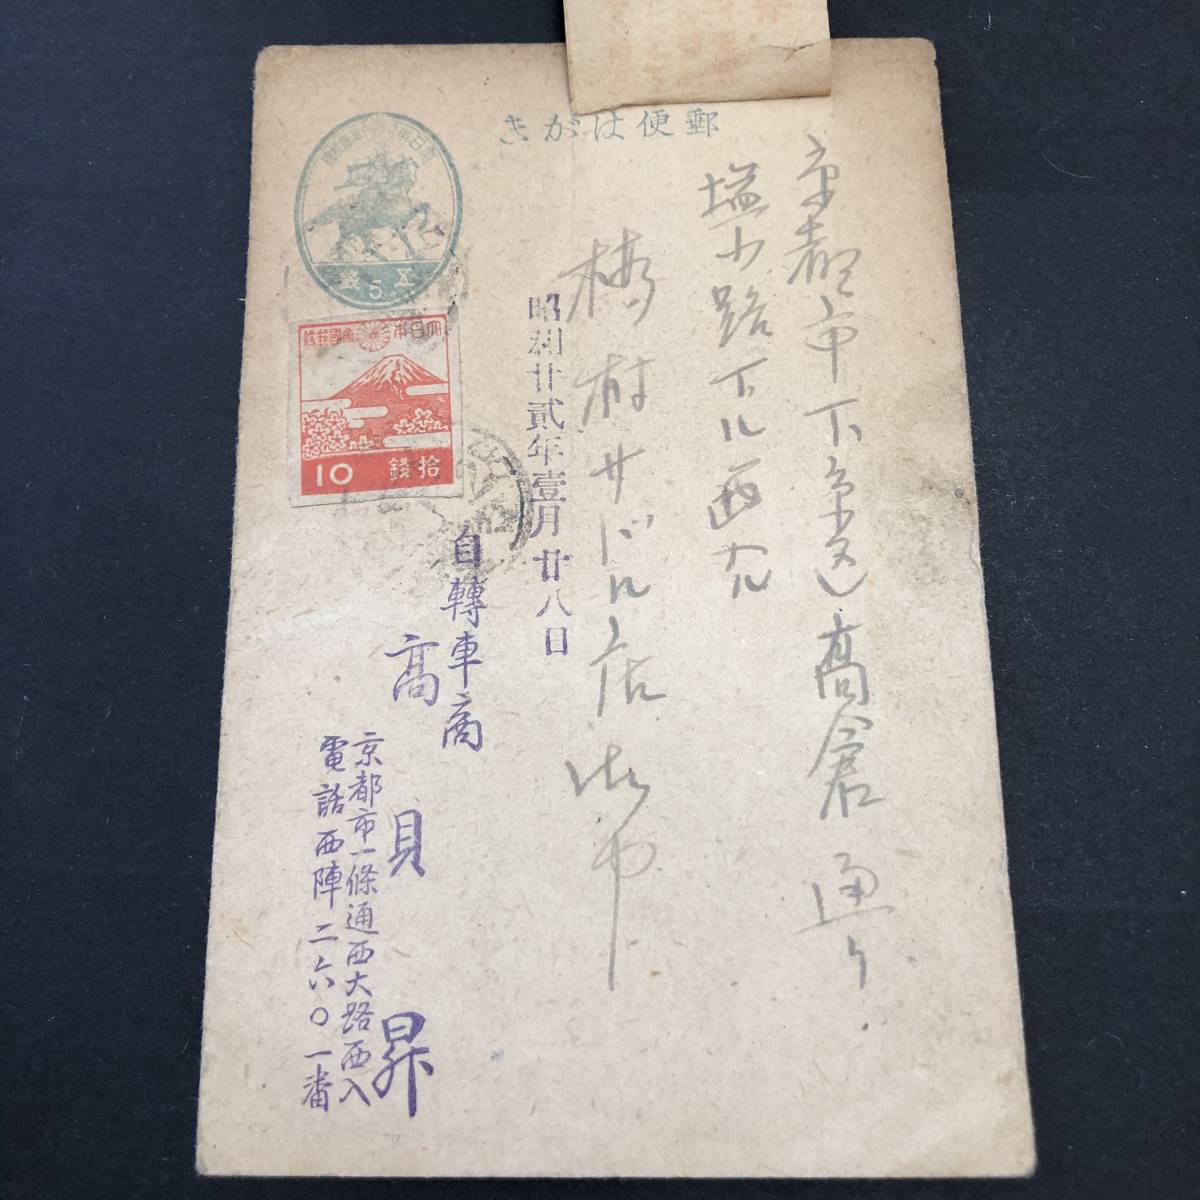 郵便はがき
五
5
錢
大日本帝國郵便
10
拾錢
京都市下京区高倉通り
塩小路下ル西入ル
橋村サドル店御中
昭和廿貳年壹月廿八日
自轉車商
高貝昇
京都市一條通西大路西入
電話西陣二六〇一番